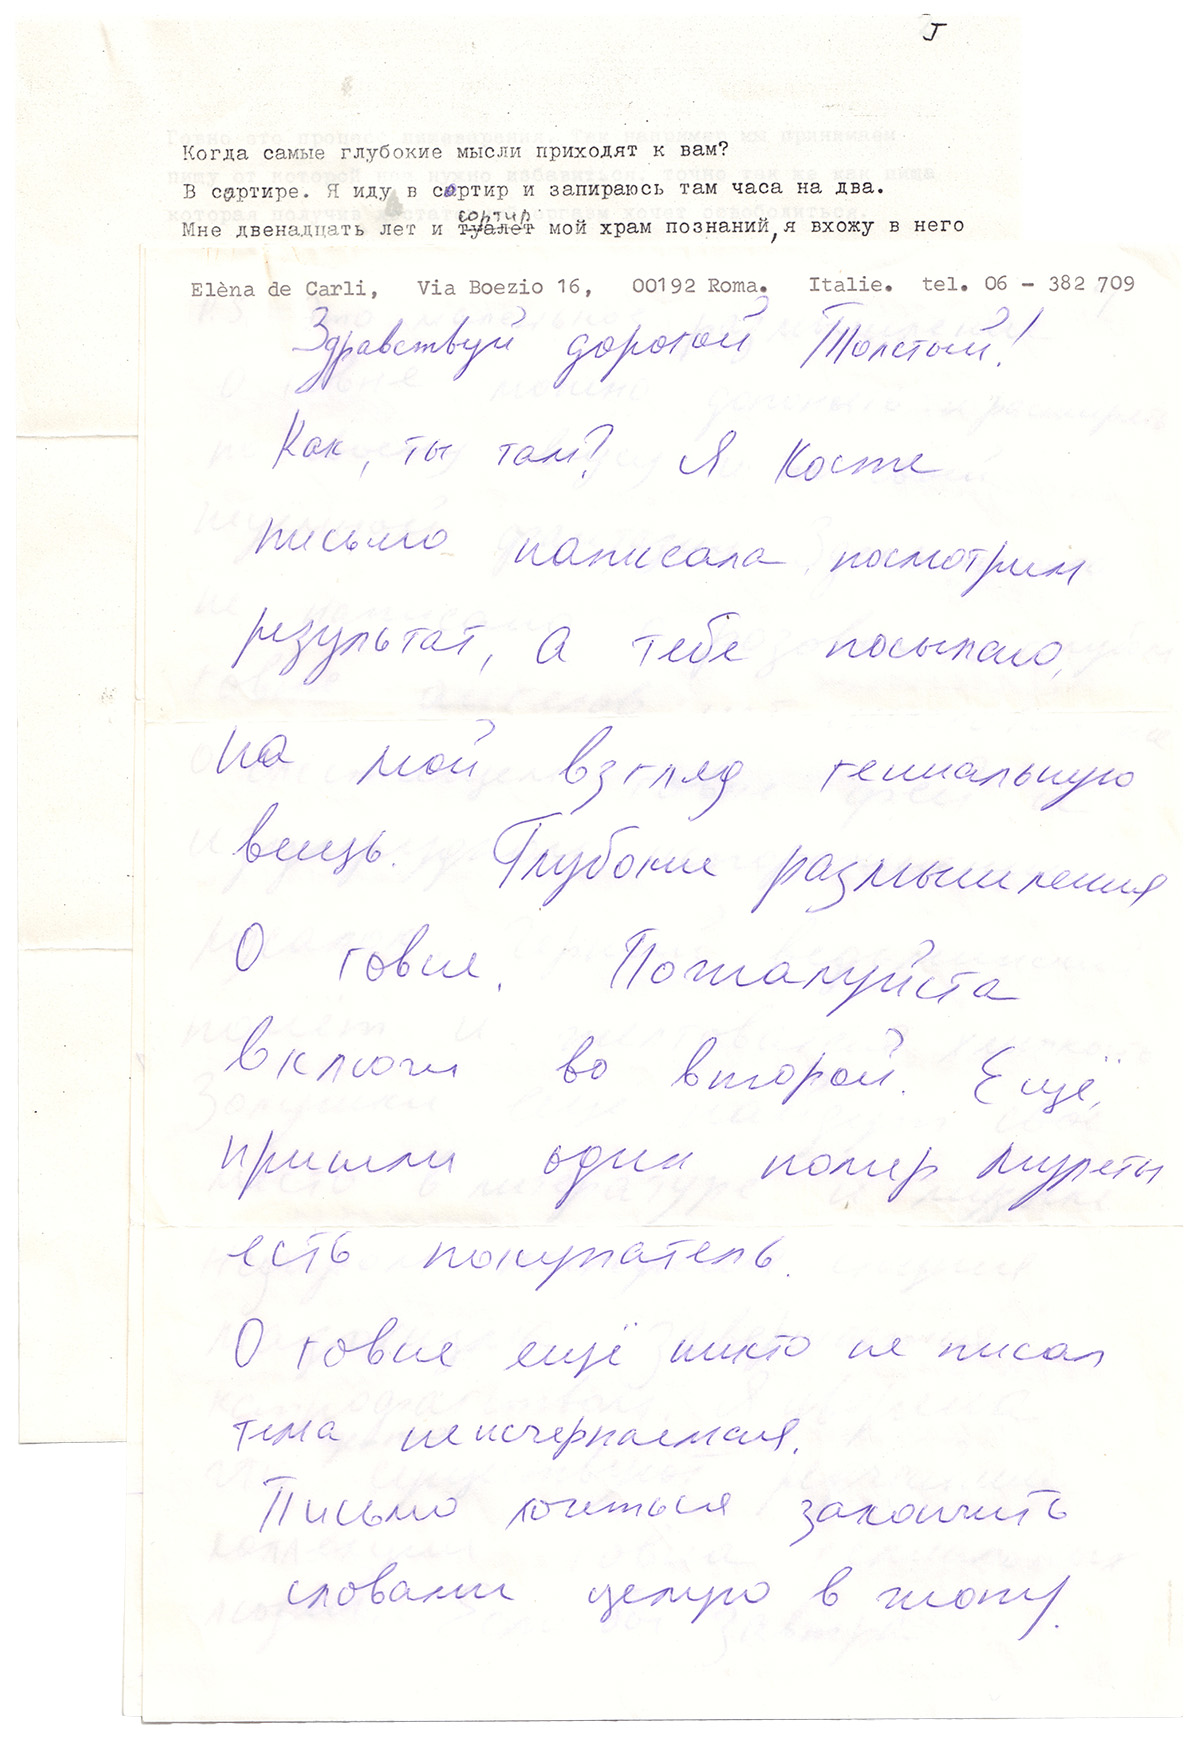 J
Когда самые глубокие мысли приходят к вам?
В сортире. Я иду в сортир и запираюсь там часа на два.
сортир
Мне двенадцать лет и туалет мой храм познаний, я вхожу в него
Elèna de Carli, Via Boezio 16, 00192 Roma. Italie. tel. 06 – 382 709
Здравствуй дорогой Толстый!
Как, ты там? Я Косте
письмо написала посмотрим
результат, а тебе посылаю,
на мой взгляд гениальную
вещь. Глубокие размышления
О говне. Пожалуйста
включи во второй. Ещё,
пришли один номер Мулеты
есть покупатель.
О говне ещё никто не писал
тема неисчерпаемая.
Письмо хочеться закончить
словами целую в жопу.